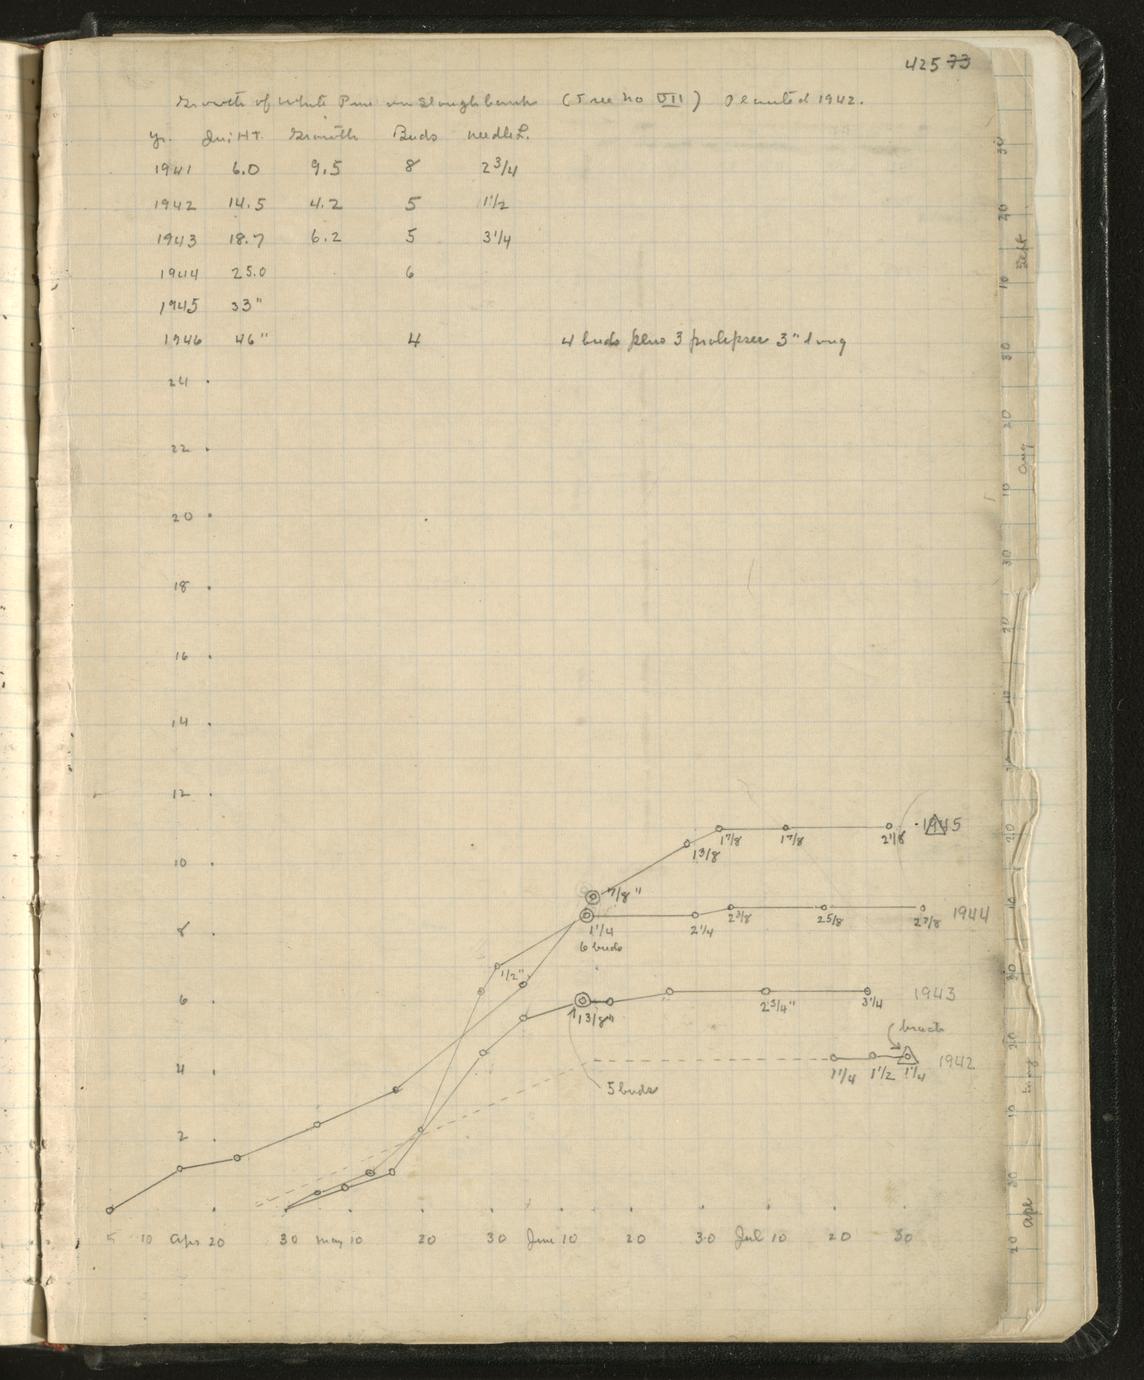 425 73
Growth of White Pine on Slough bank (Tree No VII) Planted 1942.
Yr. Ini HT. Growth Buds needle L.
1941 6.0 9.5 8 2 3/4
1942 14.5 4.2 5 1 1/2
1943 18.7 6.2 5 3 1/4
1944 25.0 6
1945 33"
1946 46" 4 4 buds plus 3 prolepses 3" long
24
22
20
18
16
14
12
10
8
6
4
2
1 3/8 1 7/8 1 7/8 2 1/8 1945
7/8"
1 1/4 2 1/4 2 3/8 2 5/8 2 7/8 1944
6 buds
1/2"
1 3/8" 2 3/4" 3 1/4 1943
branch
1 1/4 1 1/2 1 1/4 1942
5 buds
5 10 Apr 20 30 May 10 20 30 June 10 20 30 Jul 10 20 30
20 Apr 30 10 May 20 30 10 20
20 30 10 Aug 20 30 10 Sept 20 30